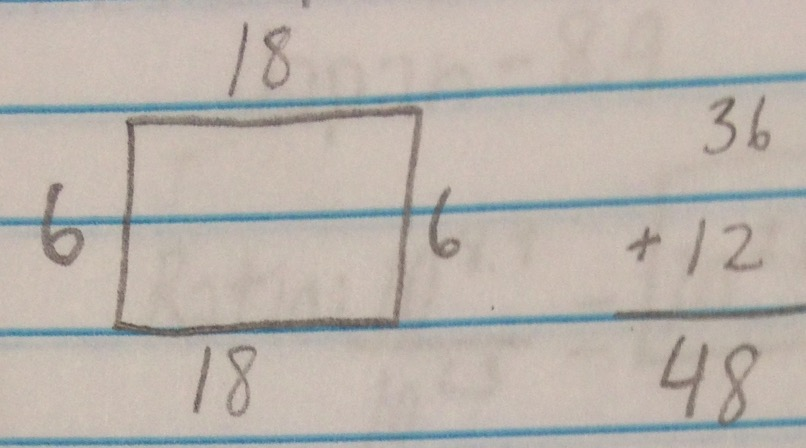 18
6 6
18
36
+ 12
48